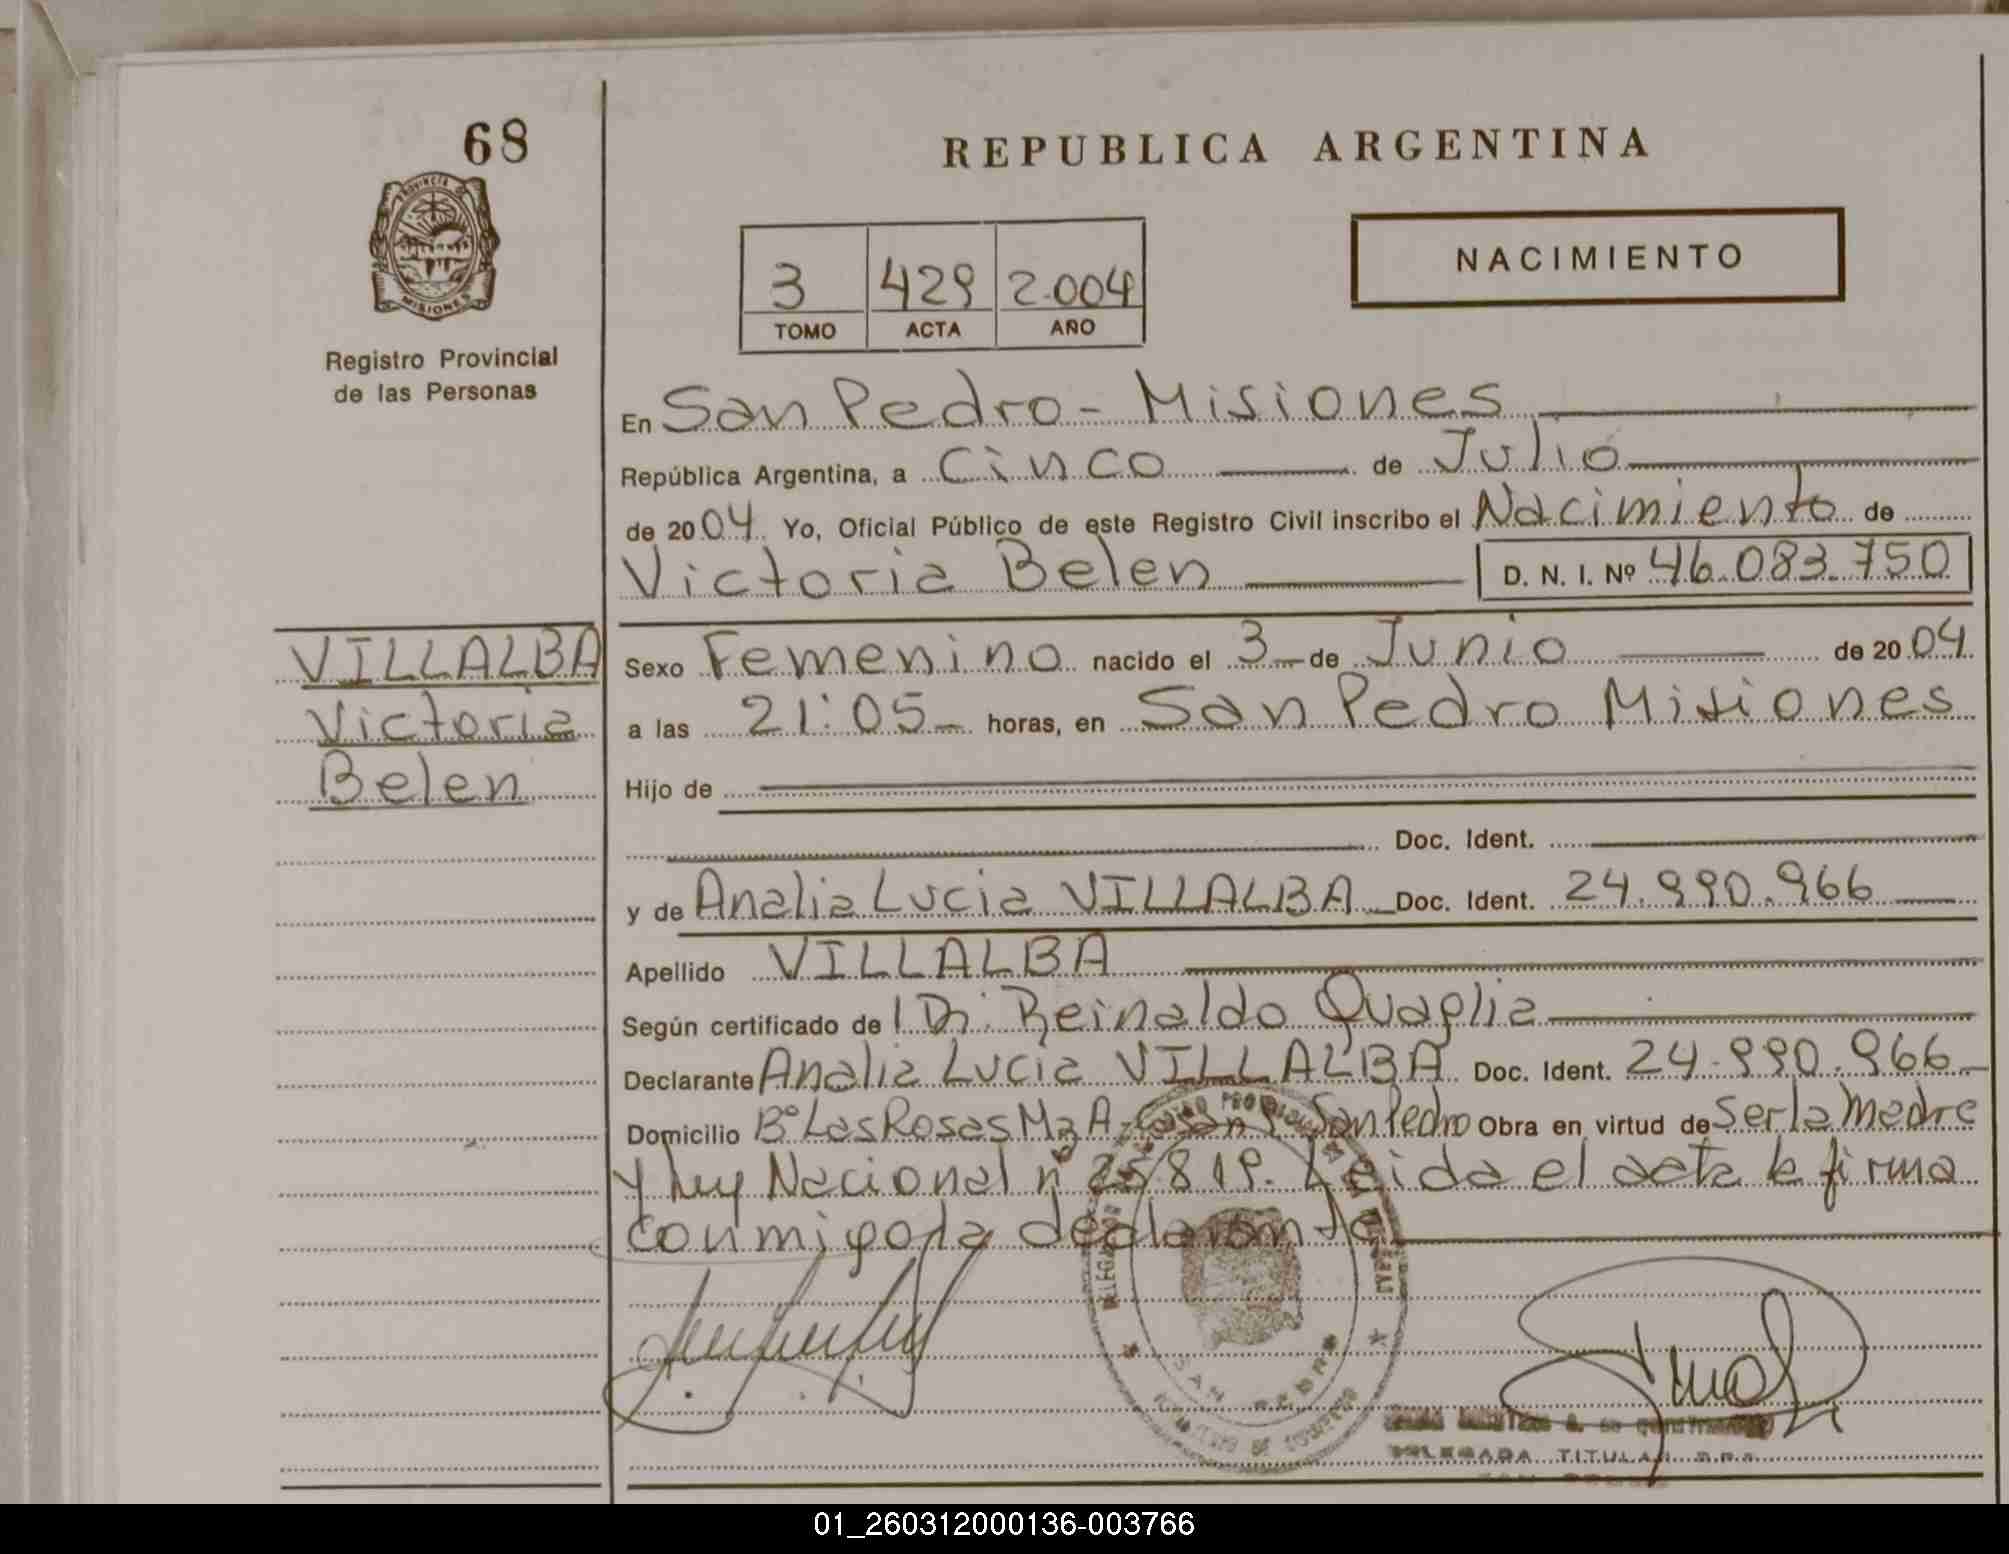 68
PROVINCIA DE
MISIONES
Registro Provincial
de las Personas
REPUBLICA ARGENTINA
NACIMIENTO
3 429 2.004
TOMO ACTA AÑO
En San Pedro - Misiones
República Argentina, a Cinco de Julio
de 2004 Yo, Oficial Público de este Registro Civil inscribo el Nacimiento de
Victoria Belen D. N. I. Nº 46.083.750
VILLALBA
Victoria
Belen
Sexo Femenino nacido el 3 de Junio de 2004
a las 21:05 horas, en San Pedro Misiones
Hijo de
Doc. Ident.
y de Analia Lucia VILLALBA Doc. Ident. 24.990.966
Apellido VILLALBA
Según certificado de Dr. Reinaldo Quaglia
Declarante Analia Lucia VILLALBA Doc. Ident. 24.990.966
Domicilio Bº Las Rosas Mz A San Pedro Obra en virtud de Ser la Madre
y ley Nacional nº 25.819. Leida el acta la firma
conmigo la declarante
SAN PEDRO
DELEGADA TITULAR R.P.P.
01_260312000136-003766